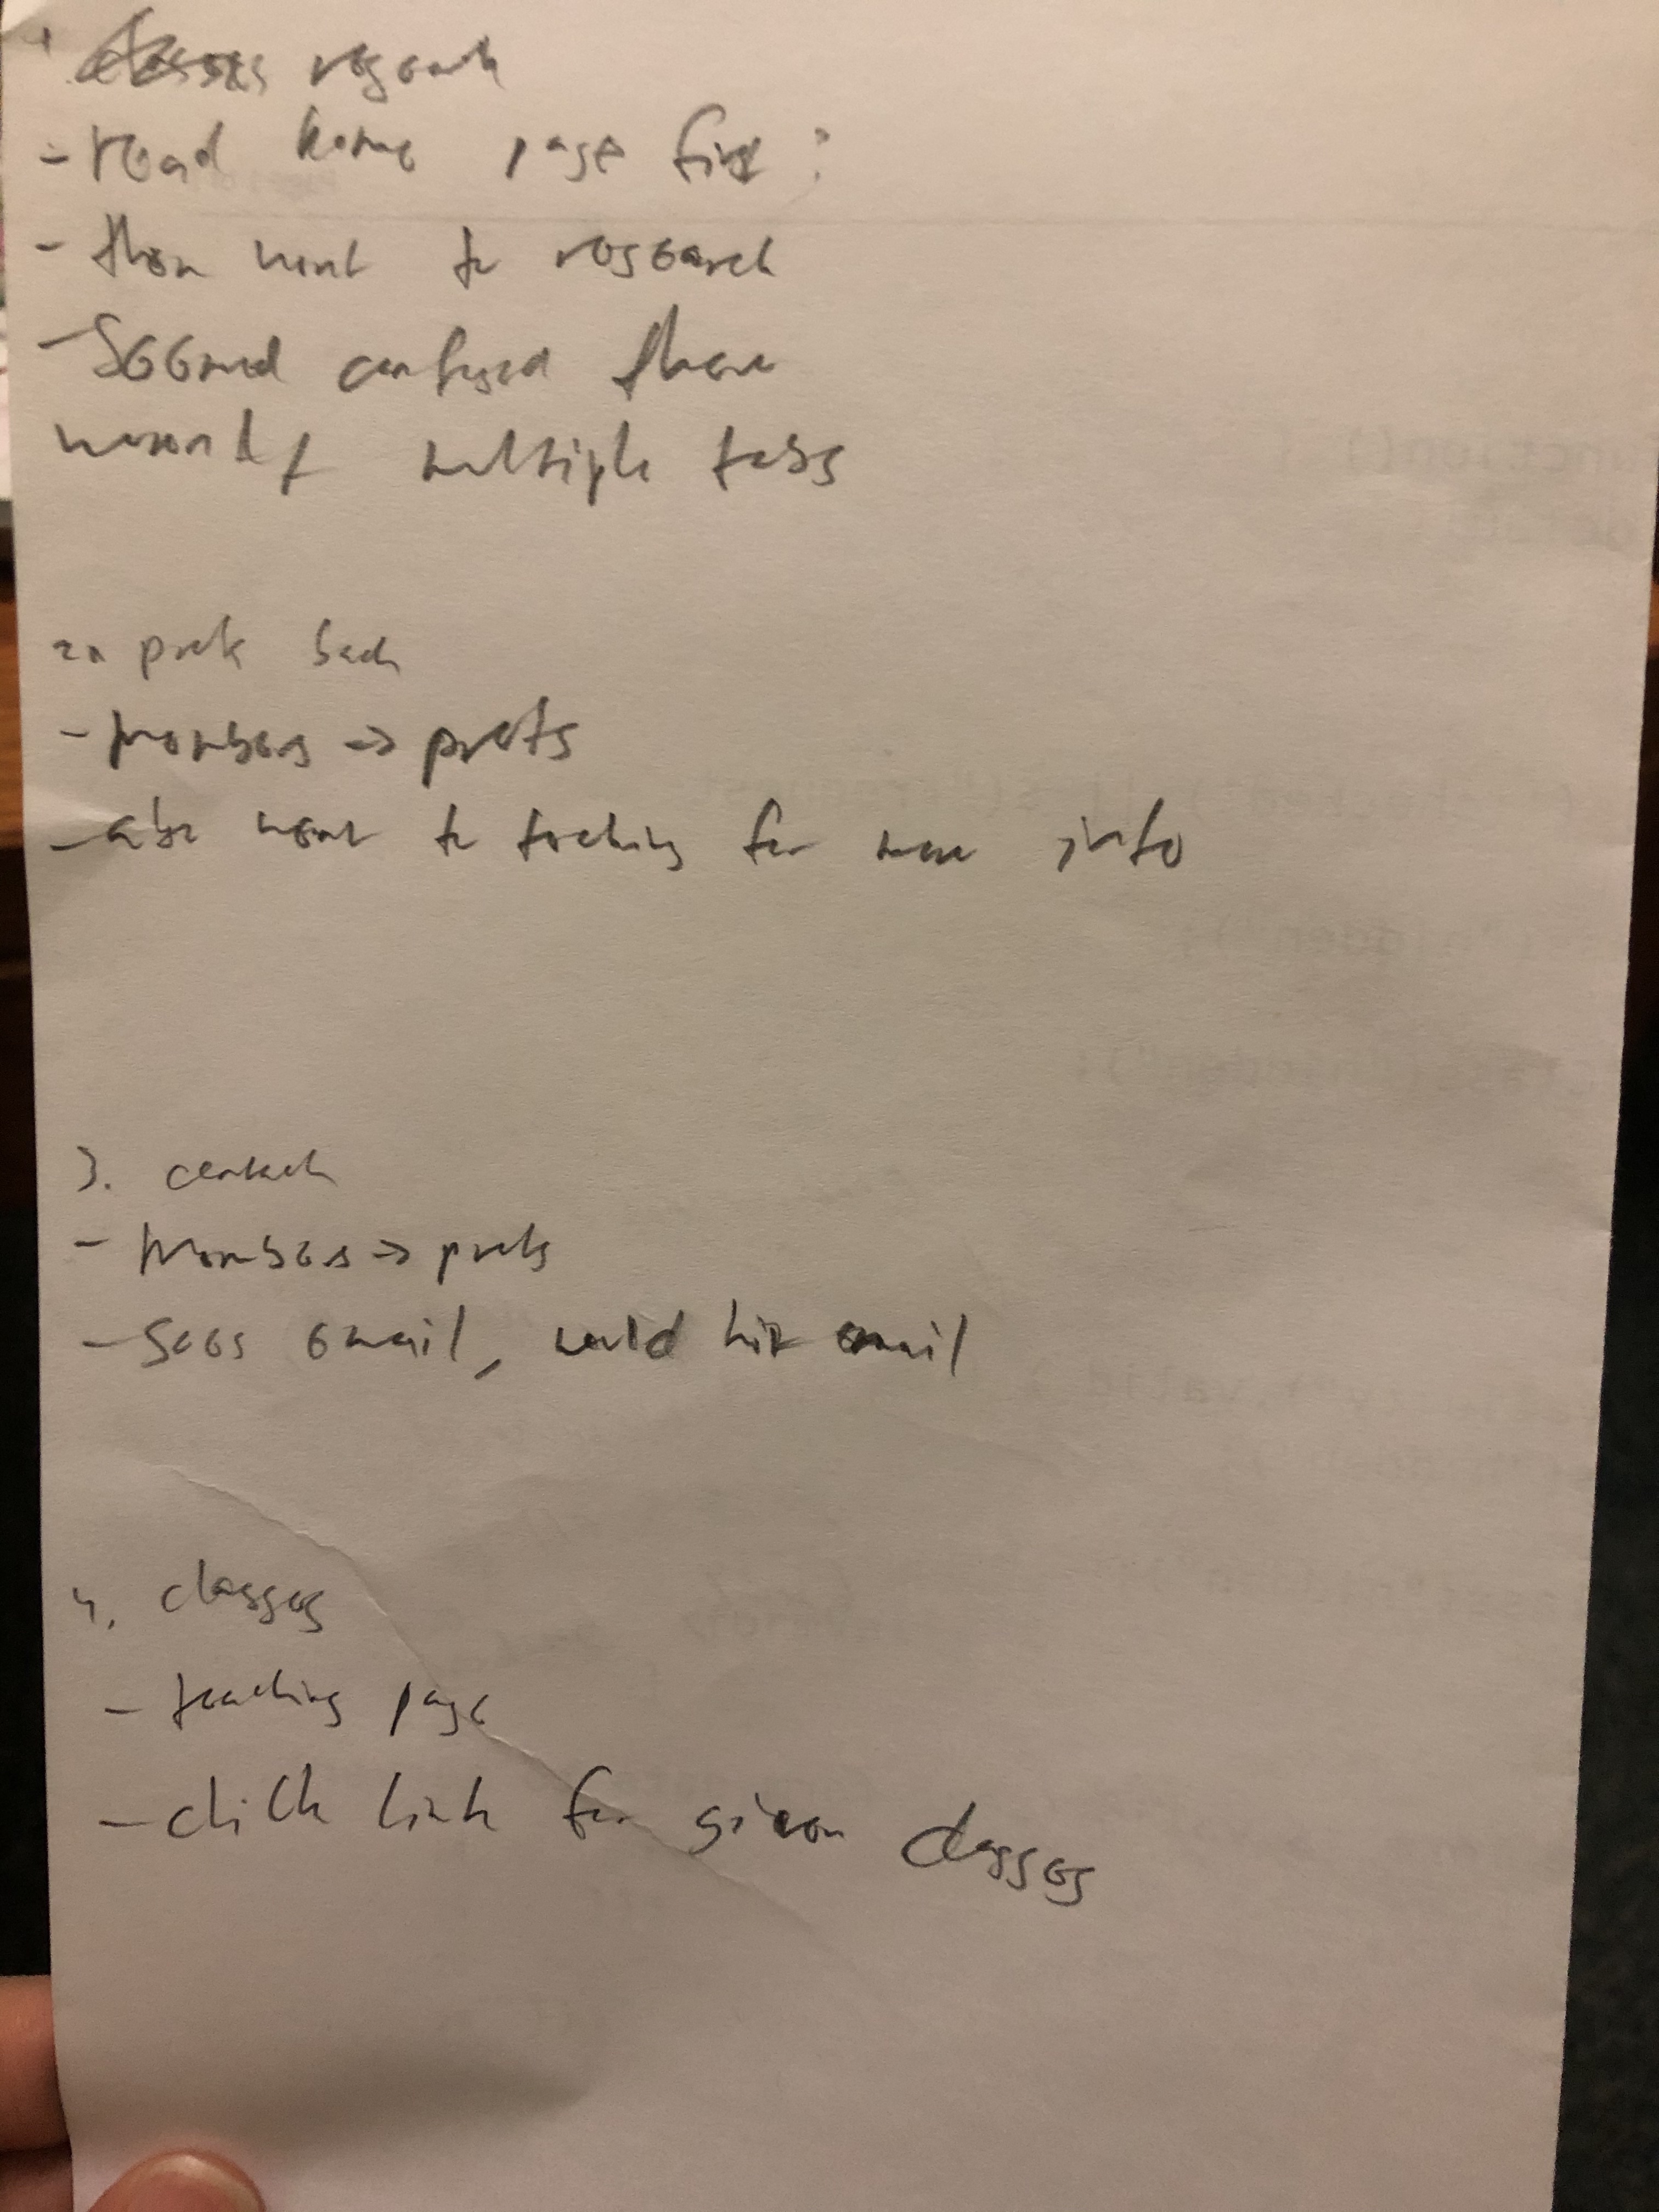 research
- read home page first
- then went to research
- seemed confused there
weren't multiple tabs
2. profs
- Members -> profs
- also went to teaching for more info
3. contact
- Members -> profs
- sees email, would hit email
4. classes
- teaching page
- click link for given classes
function()